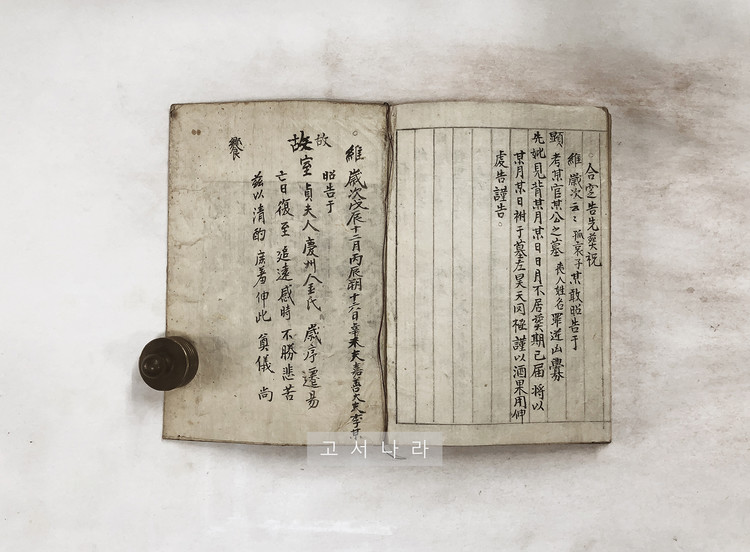 。合窆告先葬祝
維 歲次云〻 孤哀子某敢昭告于
顯考某官某公之墓 喪人姓名罪逆凶釁
先妣見背某月某日日月不居葬期已届 將以
某月某日祔于墓左昊天罔極 謹以酒果用伸
虔告謹告。
。維 歲次戊辰十二月丙辰朔十六日辛未夫嘉善大夫李某
昭告于
故
故室貞夫人慶州金氏 歲序遷易
亡日復至 追遠感時 不勝悲苦
玆以清酌 庶羞伸此 奠儀 尙
饗
고서나라